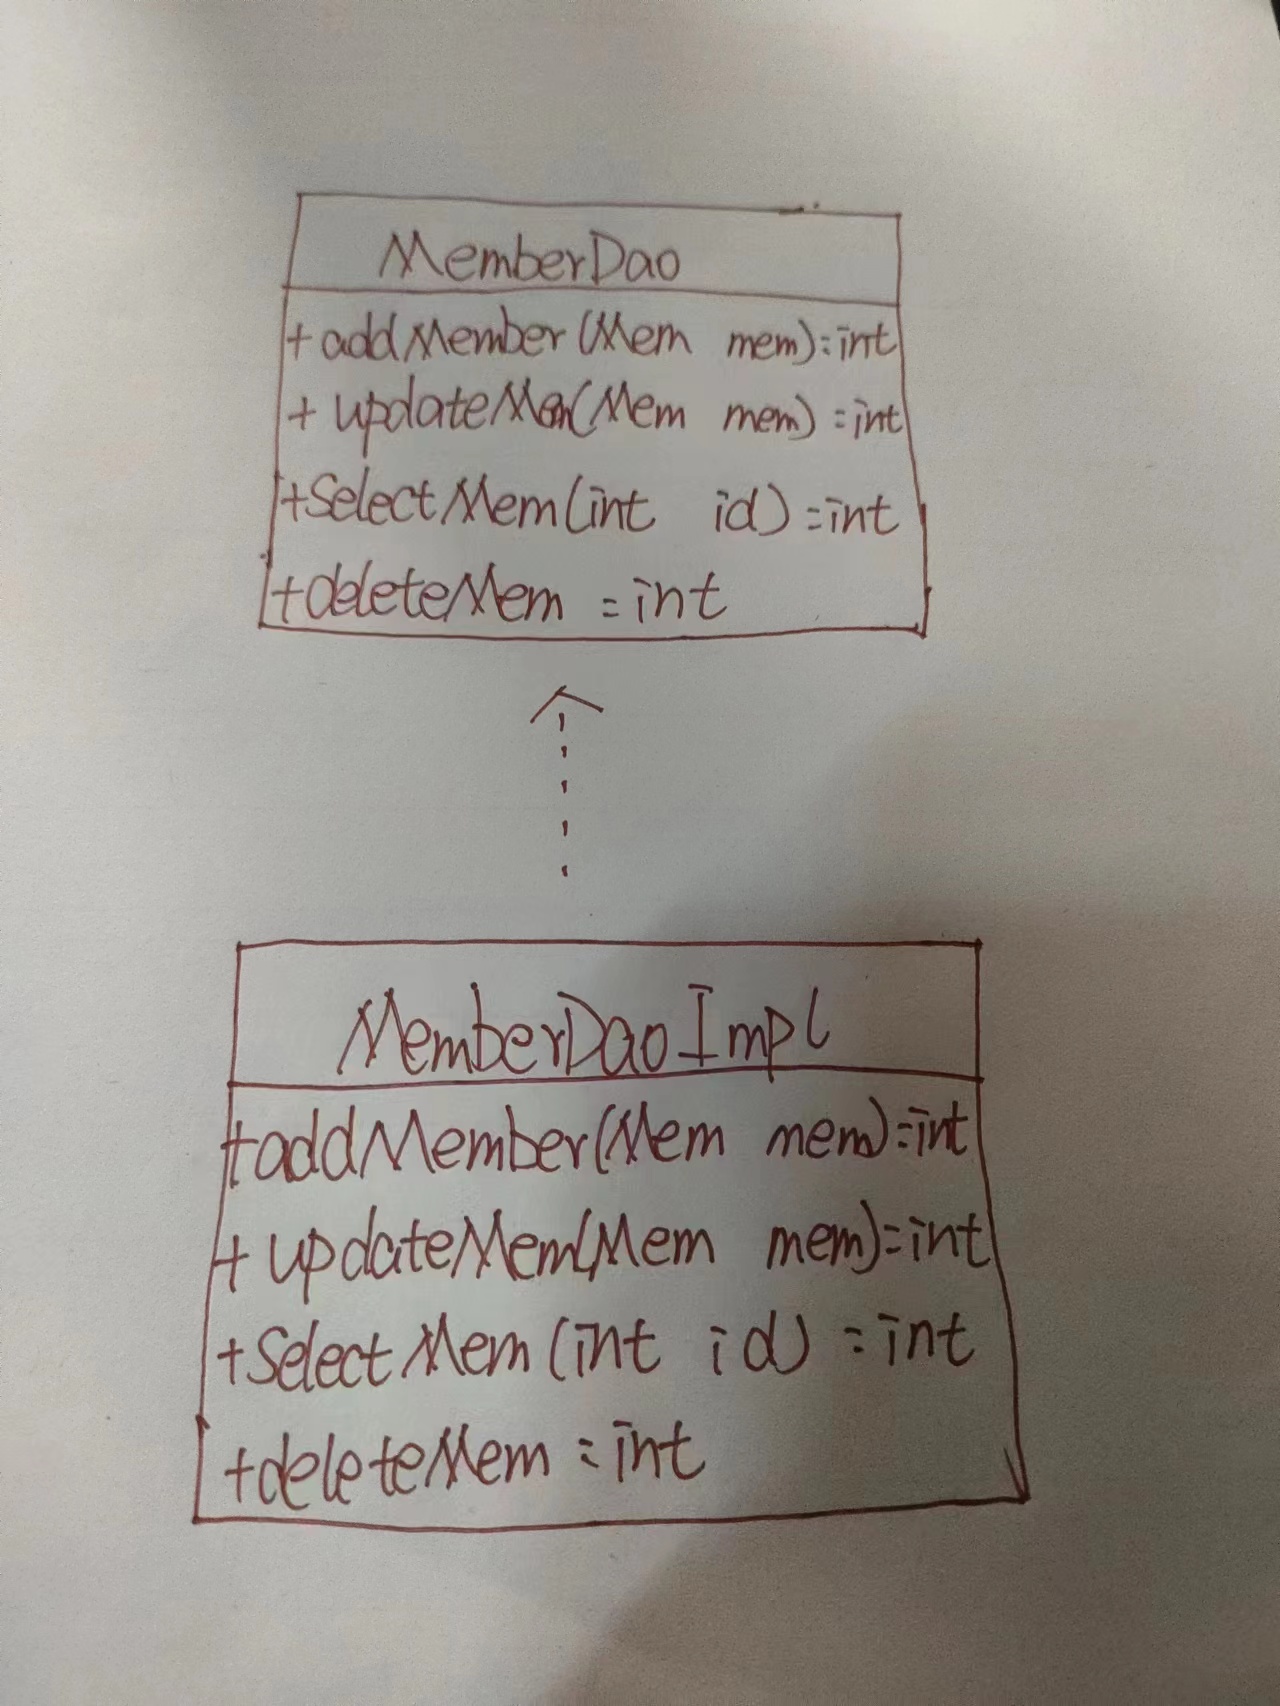 MemberDao
+addMember(Mem mem):int
+updateMem(Mem mem):int
+SelectMem(int id):int
+deleteMem:int
MemberDaoImpl
+addMember(Mem mem):int
+updateMem(Mem mem):int
+SelectMem(int id):int
+deleteMem:int